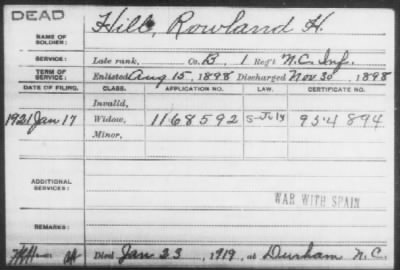 DEAD
NAME OF SOLDIER: Hill, Rowland H.
SERVICE: Late rank, Co. B, 1 Reg't N.C. Inf.
TERM OF SERVICE: Enlisted Aug 15, 1898 Discharged Nov 30, 1898
DATE OF FILING. CLASS. APPLICATION NO. LAW. CERTIFICATE NO.
Invalid,
1921 Jan 17 Widow, 1168592 934894
Minor,
ADDITIONAL SERVICES:
WAR WITH SPAIN
REMARKS:
Died Jan 23, 1919, at Durham N.C.